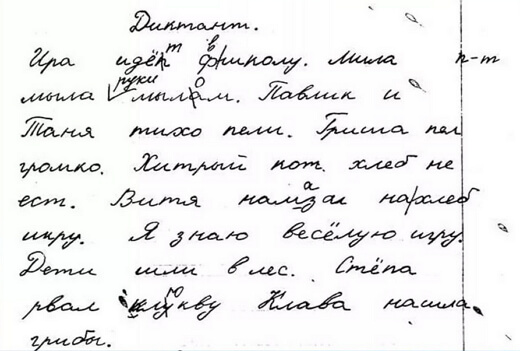 Диктант.
Ира идёт в школу. Мила п-т
мыла руки мылом. Павлик и
Таня тихо пели. Гриша пел
громко. Хитрый кот. хлеб не
ест. Витя намазал на хлеб
икру. Я знаю весёлую игру.
Дети шли в лес. Стёпа
рвал Клава нашла.
грибы.